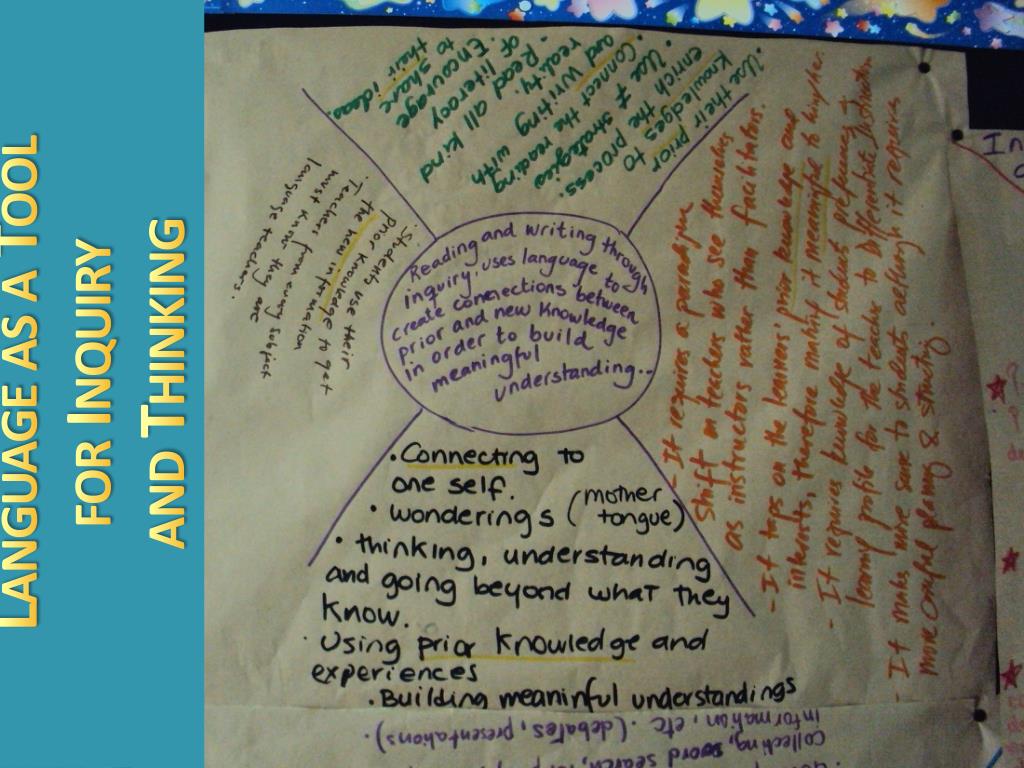 LANGUAGE AS A TOOL
FOR INQUIRY
AND THINKING
Reading and writing through
inquiry, uses language to
create connections between
prior and new knowledge
in order to build
meaningful
understanding...
• Use their prior
knowledges to
enrich the process.
• Use ≠ strategies
and writing
Connect the reading
reality. with
• Read all kind
of literacy
• Encourage
share
to
their ideas
• Students use their
prior knowledge to get
the new information
• Teachers from every subject
must know they are
language teachers.
• Connecting to
one self.
• wonderings (mother
tongue)
• thinking, understanding
and going beyond what they
know.
• Using prior knowledge and
experiences
• Building meaninful understandings
- It requires a paradigm
shift on teachers who see themselves
as instructors rather than facilitators.
- It taps on the learners' prior knowledge and
interests, therefore making it meaningful to him/her.
- It requires knowledge of student preferences,
learning profile for the teacher to differentiate instruction
- It makes more sense to students although it requires
more careful planning & structuring.
collecting, word search,
information, etc. (debates, presentations).
In